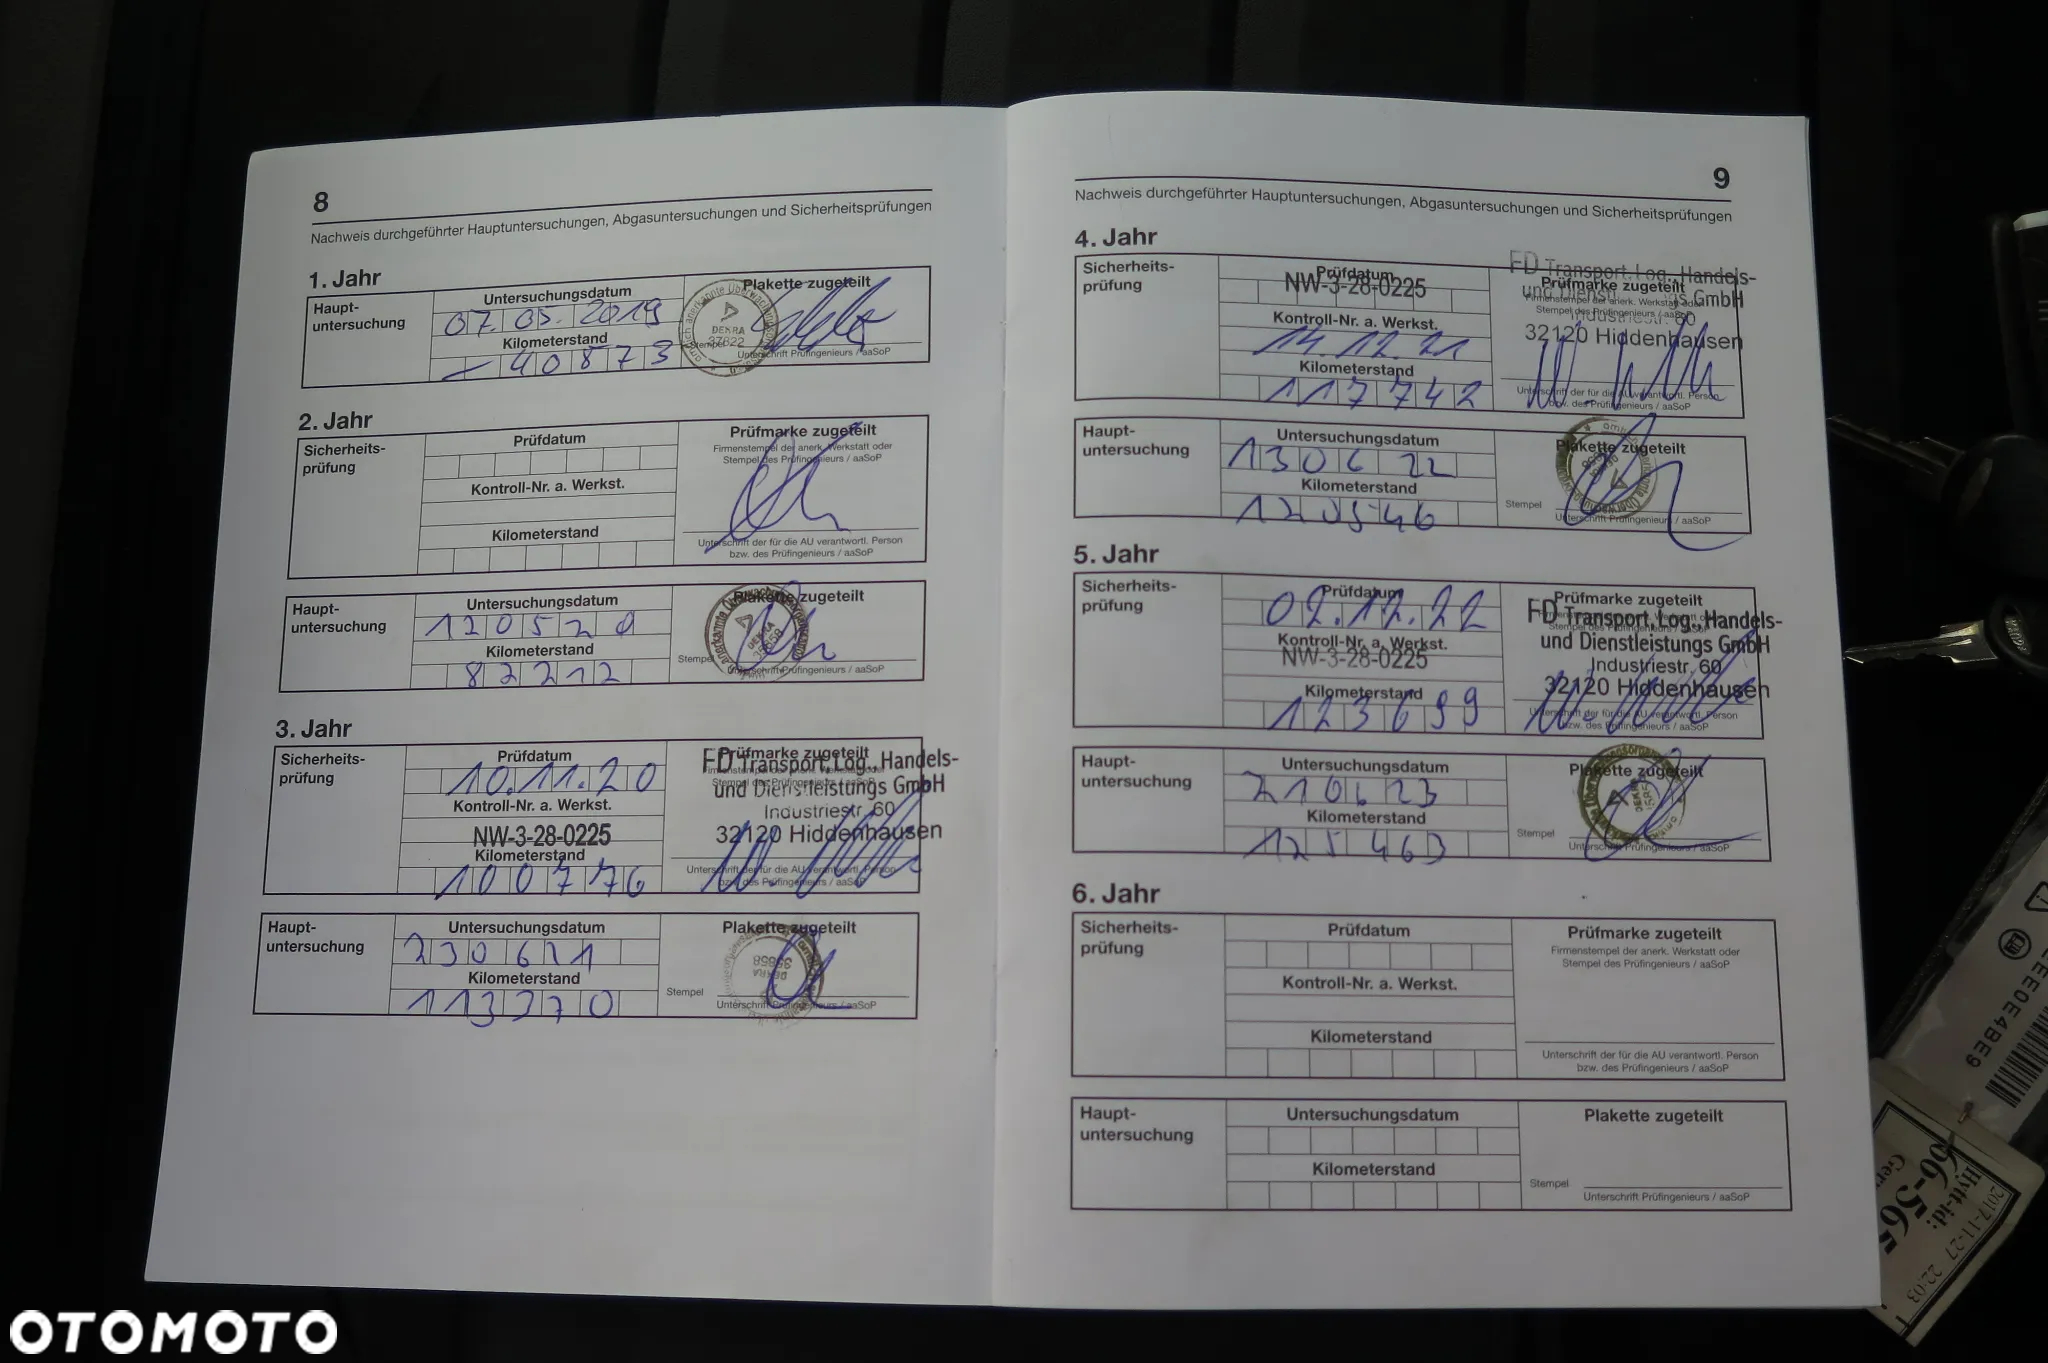 8
Nachweis durchgeführter Hauptuntersuchungen, Abgasuntersuchungen und Sicherheitsprüfungen
1. Jahr
Haupt-
untersuchung
Untersuchungsdatum
07. 05. 2019
Kilometerstand
- 40873
Plakette zugeteilt
DEKRA
37822
Stempel
Unterschrift Prüfingenieurs / aaSoP
2. Jahr
Sicherheits-
prüfung
Prüfdatum
Kontroll-Nr. a. Werkst.
Kilometerstand
Prüfmarke zugeteilt
Firmenstempel der anerk. Werkstatt oder
Stempel des Prüfingenieurs / aaSoP
Unterschrift der für die AU verantwortl. Person
bzw. des Prüfingenieurs / aaSoP
Haupt-
untersuchung
Untersuchungsdatum
120520
Kilometerstand
82212
Plakette zugeteilt
DEKRA
Stempel
Unterschrift Prüfingenieurs / aaSoP
3. Jahr
Sicherheits-
prüfung
Prüfdatum
10.11.20
Kontroll-Nr. a. Werkst.
NW-3-28-0225
Kilometerstand
100776
Prüfmarke zugeteilt
FD Transport, Log., Handels-
und Dienstleistungs GmbH
Industriestr. 60
32120 Hiddenhausen
Unterschrift der für die AU verantwortl. Person
bzw. des Prüfingenieurs / aaSoP
Haupt-
untersuchung
Untersuchungsdatum
230621
Kilometerstand
113370
Plakette zugeteilt
DEKRA
35858
Stempel
Unterschrift Prüfingenieurs / aaSoP
9
Nachweis durchgeführter Hauptuntersuchungen, Abgasuntersuchungen und Sicherheitsprüfungen
4. Jahr
Sicherheits-
prüfung
Prüfdatum
NW-3-28-0225
Kontroll-Nr. a. Werkst.
14.12.21
Kilometerstand
117742
FD Transport, Log., Handels-
Prüfmarke zugeteilt
und Dienstleistungs GmbH
Industriestr. 60
32120 Hiddenhausen
Unterschrift der für die AU verantwortl. Person
bzw. des Prüfingenieurs / aaSoP
Haupt-
untersuchung
Untersuchungsdatum
130622
Kilometerstand
120546
Plakette zugeteilt
DEKRA
Stempel
Unterschrift Prüfingenieurs / aaSoP
5. Jahr
Sicherheits-
prüfung
Prüfdatum
02.12.22
Kontroll-Nr. a. Werkst.
NW-3-28-0225
Kilometerstand
123699
Prüfmarke zugeteilt
FD Transport, Log., Handels-
und Dienstleistungs GmbH
Industriestr. 60
32120 Hiddenhausen
Unterschrift der für die AU verantwortl. Person
bzw. des Prüfingenieurs / aaSoP
Haupt-
untersuchung
Untersuchungsdatum
210623
Kilometerstand
125463
Plakette zugeteilt
DEKRA
Stempel
Unterschrift Prüfingenieurs / aaSoP
6. Jahr
Sicherheits-
prüfung
Prüfdatum
Kontroll-Nr. a. Werkst.
Kilometerstand
Prüfmarke zugeteilt
Firmenstempel der anerk. Werkstatt oder
Stempel des Prüfingenieurs / aaSoP
Unterschrift der für die AU verantwortl. Person
bzw. des Prüfingenieurs / aaSoP
Haupt-
untersuchung
Untersuchungsdatum
Kilometerstand
Plakette zugeteilt
Stempel
Unterschrift Prüfingenieurs / aaSoP
Hytt-id:
2017-11-27 22:03
OTOMOTO